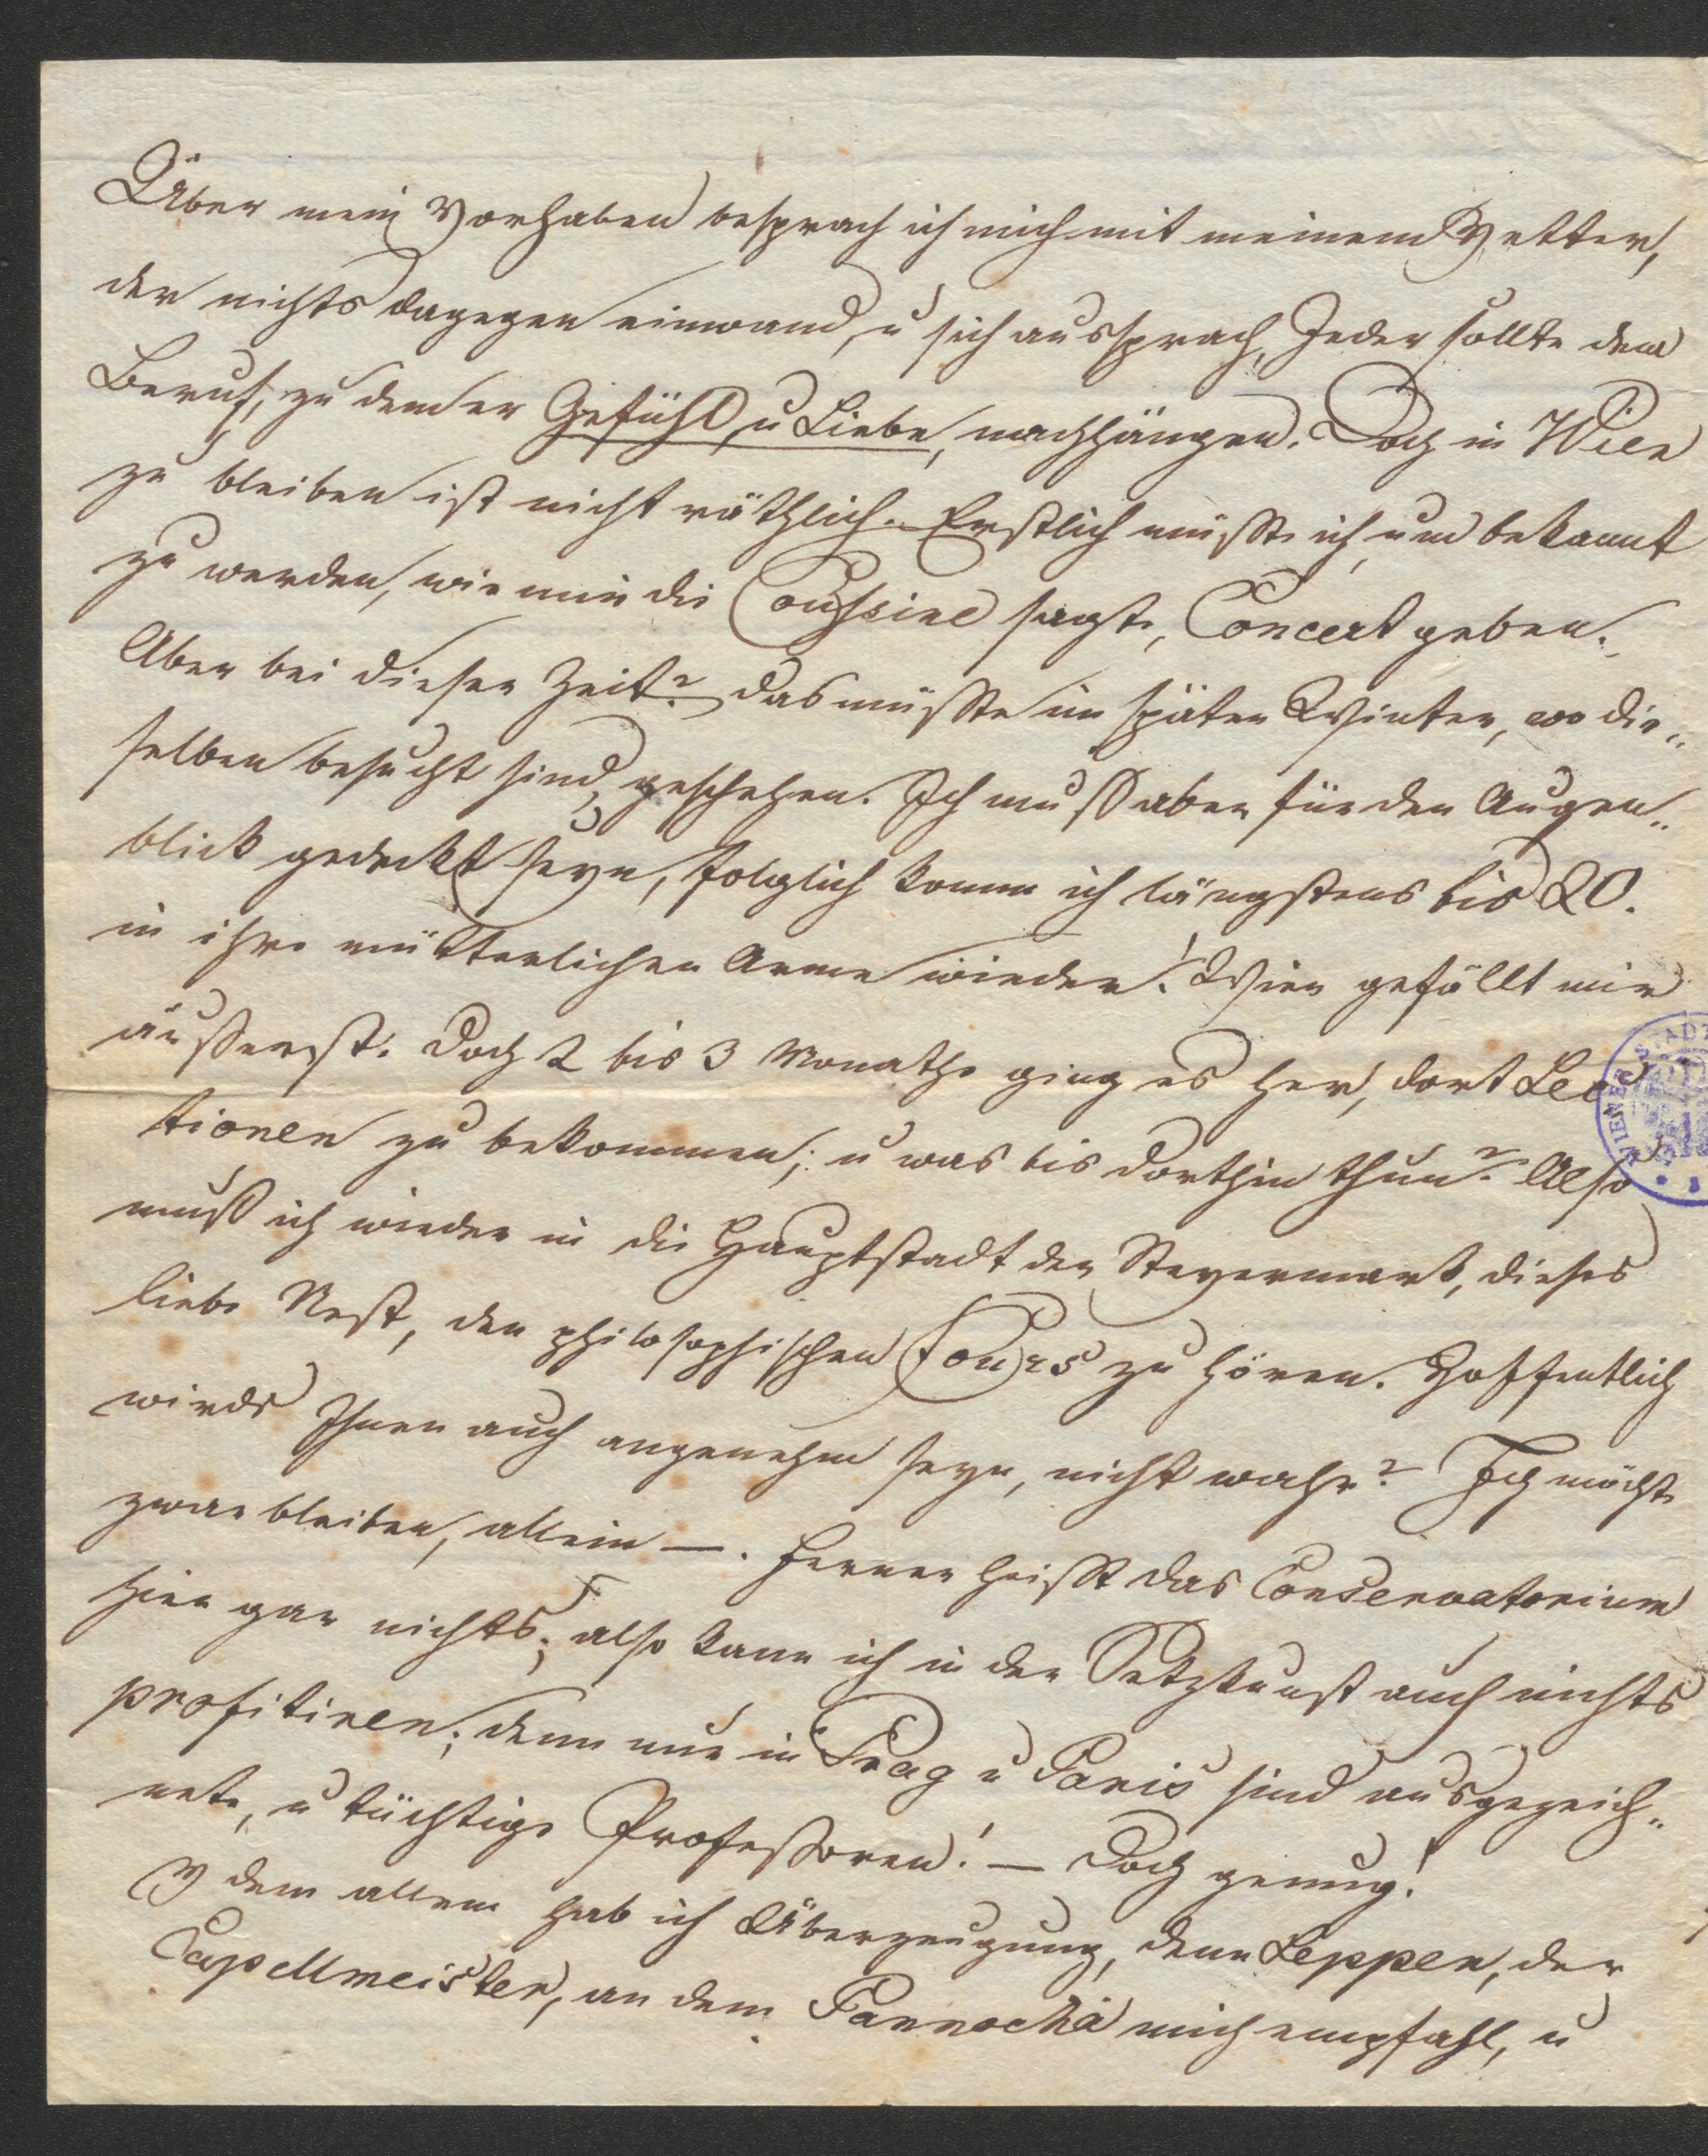 Über mein Vorhaben besprach ich mich mit meinem Vetter,
der nichts dagegen einwand, u sich aussprach, Jeder sollte dem
Beruf, zu dem er Gefühl u Liebe, nachhängen. Doch in Wien
zu bleiben ist nicht räthlich. Erstlich müßte ich, um bekannt
zu werden, wie mir die Coussine sagte, Concert geben.
Aber bei dieser Zeit? das müßte im späten Winter, wo die„
selben besucht sind, geschehen. Ich muß aber für den Augen„
blick gedeckt seyn, folglich komme ich längstens bis 20.
in ihre mütterlichen Arme wieder! Wien gefällt mir
äußerst. Doch 2 bis 3 Monathe ging es her, dort Lec
tionen zu bekommen; u was bis dorthin thun? Also
muß ich wieder in die Hauptstadt der Steyermark, dieses
liebe Nest, den philosophischen Cours zu hören. Hoffentlich
wirds Ihnen auch angenehm seyn, nicht wahr? Ich möchte
zwar bleiben, allein —. Ferner heißt das Conservatorium
hier gar nichts; also kann ich in der Setzkunst auch nichts
profitiren; denn nur in Prag u Paris sind ausgezeich„
nete, u tüchtige Professoren! — Doch genug!
V dem allem hab ich Überzeugung, denn Leppen, der
Capellmeister, an dem mich empfahl, u
WIENER STADT